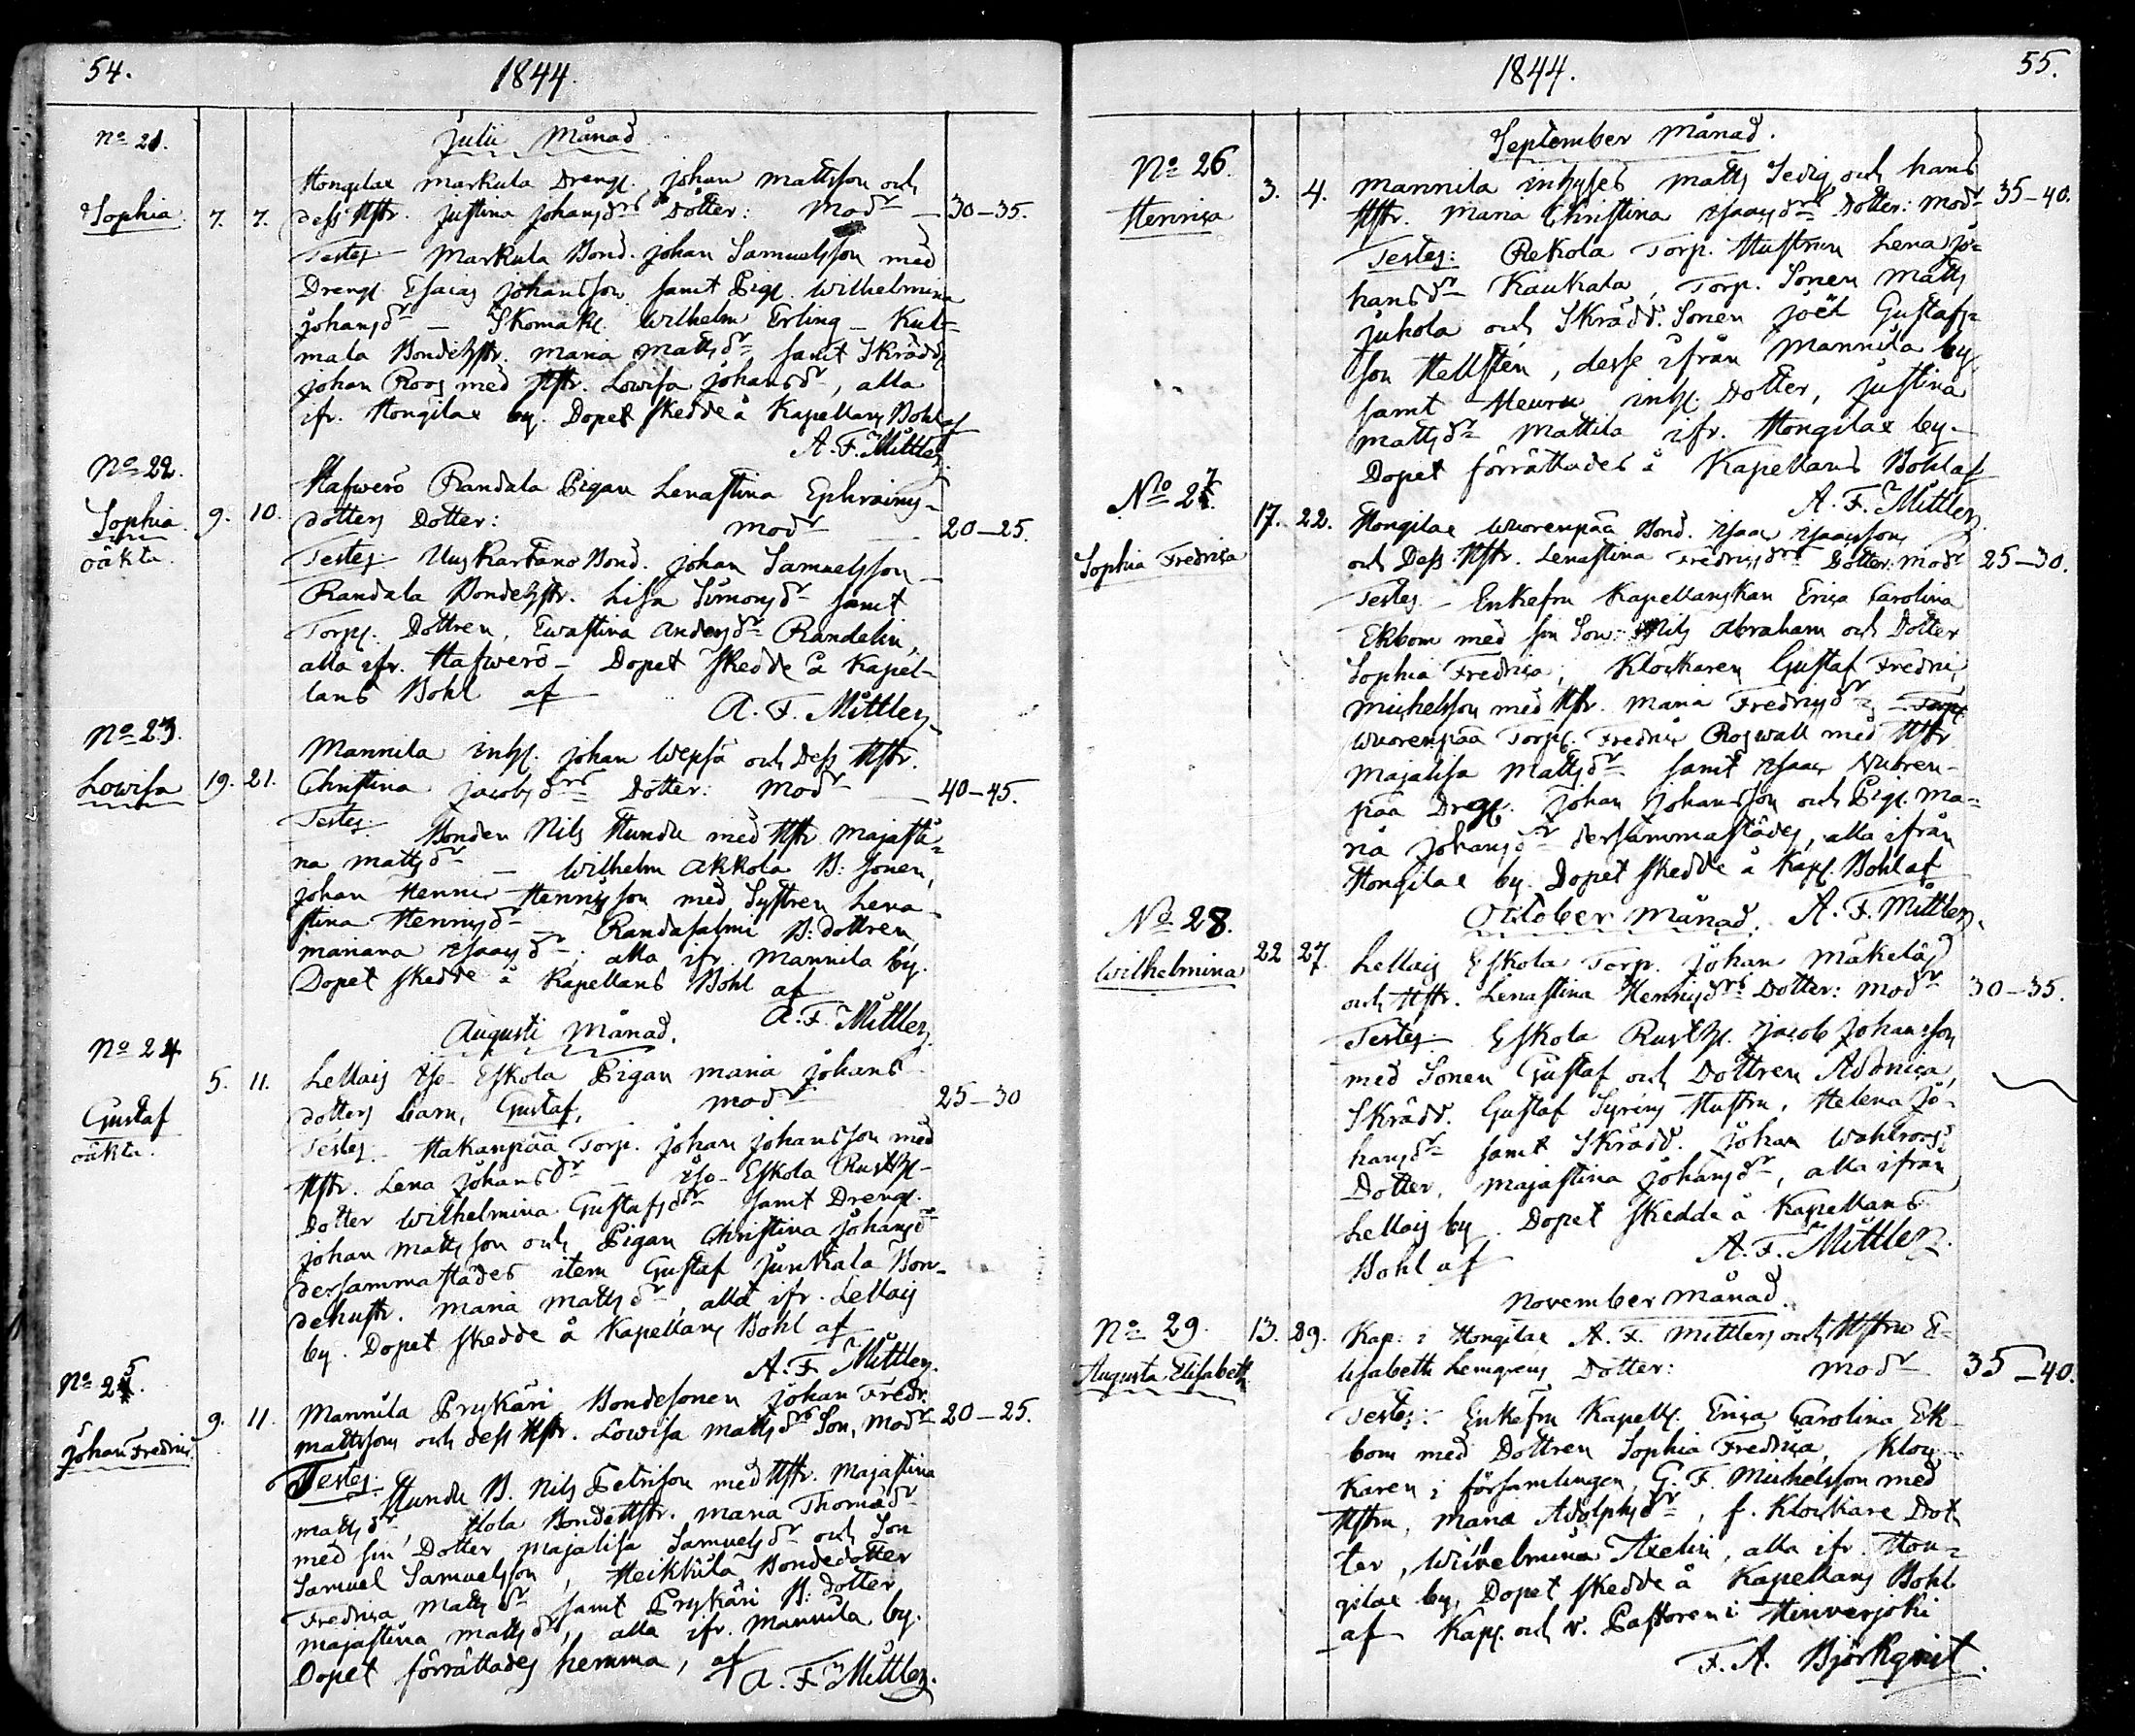 54.
1844.
Julii Månad
No 21.
Hongilax Markula Dreng. Johan Mattsson och
Sophia. 7. 7. dess Hstr. Justina Johansdrs Dotter: Modr — 30-35.
Testes Markula Bond. Johan Samuelsson med
Dreng. Esaias Johansson samt Pig. Wilhelmina
Johansdr — Skomak. Wilhelm Erling — Kul=
mala Bondehstr. Maria Mattsdr samt Skrädd.
Johan Roos med Hstr. Lowisa Johansdr, alla
ifr. Hongilax by. Dopet skedde å Kapellans Bohl af
A. F. Mittler
No 22.
Hafwerö Randala Pigan Lenastina Ephraims-
Sophia 9. 10. dotters Dotter: Modr — 20-25.
oäkta.
Testes Uuskartano Bond. Johan Samuelsson —
Randala Bondehstr. Lisa Simonsdr samt
Torp. Dottren, Ewastina Andersdr Randelin,
alla ifr. Hafwerö — Dopet skedde å Kapel-
lans Bohl af
A. F. Mittler
No 23.
Mannila inhs. Johan Wepsä och Dess Hstr.
Lowisa 19. 21. Christina Jacobsdrs Dotter: Modr — 40-45.
Testes: Bonden Nils Hundu med Hstr Majasti=
na Mattsdr — Wilhelm Akkola B: Sonen,
Johan Henric Henricsson med Systren Lena-
stina Henricsdr — Randasalmi B: Dottren,
Mariana Isaacsdr; alla ifr. Mannila by.
Dopet skedde å Kapellans Bohl af
A. F. Mittler
Augusti Månad.
No 24
5. 11. Lellais Iso-Eskola Pigan Maria Johans-
Gustaf
dotters barn, Gustaf, Modr 25-30
oäkta.
Testes Hakanpää Torp. Johan Johansson med
Hstr. Lena Johansdr — Iso-Eskola Rusth.
Dotter Wilhelmina Gustafsdr samt Dreng.
Johan Mattsson och Pigan Christina Johansdr
dersammastädes item Gustaf Junkala Bon-
dehustr. Maria Mattsdr, alla ifr. Lellais
by. Dopet skedde å Kapellans Bohl af
A. F. Mittler.
No 25.
9. 11. Mannila Prykäri Bondesonen Johan Fredr.
Johan Fredric
Mattssons och dess Hstr. Lowisa Mattsdrs Son, Modr 20-25.
Testes: Hundu B. Nils Petrisson med Hstr. Majastina
Mattsdr, Hola Bondehstr. Maria Thomædr
med sin Dotter Majalisa Samuelsdr och Son
Samuel Samuelsson, Heikkilä Bondedotter
Fredrica Mattsdr samt Prykäri B: dotter
Majastina Mattsdr, alla ifr. Mannila by.
Dopet förrättades hemma, af
A. F. Mittler.
1844.
55.
September Månad.
No 26.
3. 4. Mannila inhyses Matts Sedig och hans
Henrica
Hstr. Maria Christina Isaacsdrs Dotter: Modr 35-40.
Testes: Rekola Torp. Hustrun Lena Jo=
hansdr Kaukala, Torp. Sonen Matts
Juhola och Skrädd. Sonen Joël Gustafs=
son Hellstén, desse ifrån Mannila by
samt Heuru inhs. Dotter, Justina
Mattsdr Mattila ifr. Hongilax by.
Dopet förrättades å Kapellans Bohl af
A. F. Mittler
No 27.
17. 22. Hongilax Wuorenpää Bond. Isaac Isaacssons
Sophia Fredrica
och Dess Hstr. Lenastina Fredricsdrs Dotter. Modr 25-30.
Testes — Enkefru Kapellanskan Erica Carolina
Ekbom med sin Son: Nils Abraham och Dotter
Sophia Fredrica; Klockaren Gustaf Fredric
Michelsson med Hstr. Maria Fredricsdr
Wuorenpää Torp. Fredric Roswall med Hstr
Majalisa Mattsdr samt Isaac Wuoren-
pää Dreg. Johan Johansson och Pig. Ma=
ria Johansdr dersammastädes, alla ifrån
Hongilax by. Dopet skedde å Kap. Bohl af
A. F. Mittler.
October Månad.
No 28.
22 27. Lellais Eskola Torp. Johan Mäkeläs
Wilhelmina
och Hstr. Lenastina Henricsdrs Dotter: Modr 30-35.
Testes Eskola Rusth. Jacob Johansson
med Sonen Gustaf och Dottren Adonica,
Skrädd. Gustaf Syréns Hustru, Helena Jo-
hansdr samt Skrädd. Johan Wahlroos
Dotter, Majastina Johansdr, alla ifrån
Lellais by. Dopet skedde å Kapellans
Bohl af
A. F. Mittler.
November Månad.
No 29.
13. 29. Kap: i Hongilax A. F. Mittlers och Hstru E-
Augusta Elisabeth
lisabeth Lemgrens Dotter: Modr 35-40.
Testes: Enkefru Kapell. Erica Carolina Ek-
bom med Dottren Sophia Fredrica, Kloc-
karen i församlingen G. F. Michelsson med
Hstru, Maria Adolphsdr, f. Klockare Dot-
ter, Wilhelmina Axelin, alla ifr. Hon=
gilax by. Dopet skedde å Kapellans Bohl
af Kap. och v. Pastoren i Hinnerjoki
F. A. Björkqvist.